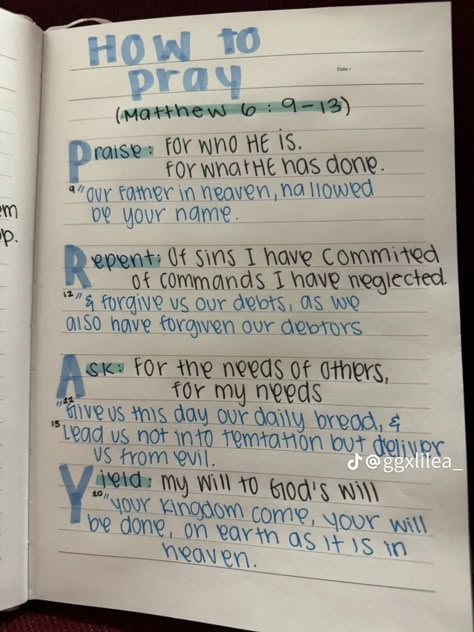 How to
pray
Date:
(Matthew 6:9-13)
Praise: For who HE is.
For what HE has done.
9 "Our Father in heaven, hallowed
be your name.
Repent: Of sins I have commited
of commands I have neglected.
12 "& forgive us our debts, as we
also have forgiven our debtors
Ask: For the needs of others,
for my needs
"11
Give us this day our daily bread, &
13 Lead us not into temtation but deliver
us from evil.
@ggxlilea_
Yield: my will to God's will
10 "your kingdom come, your will
be done, on earth as it is in
heaven.
em
p.